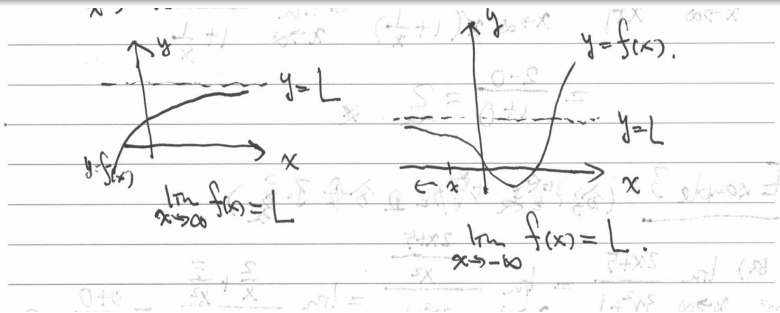 y
y = L
y=f(x)
x
lim f(x) = L
x→∞
y
y = f(x).
y = L
← x
x
lim f(x) = L.
x→-∞